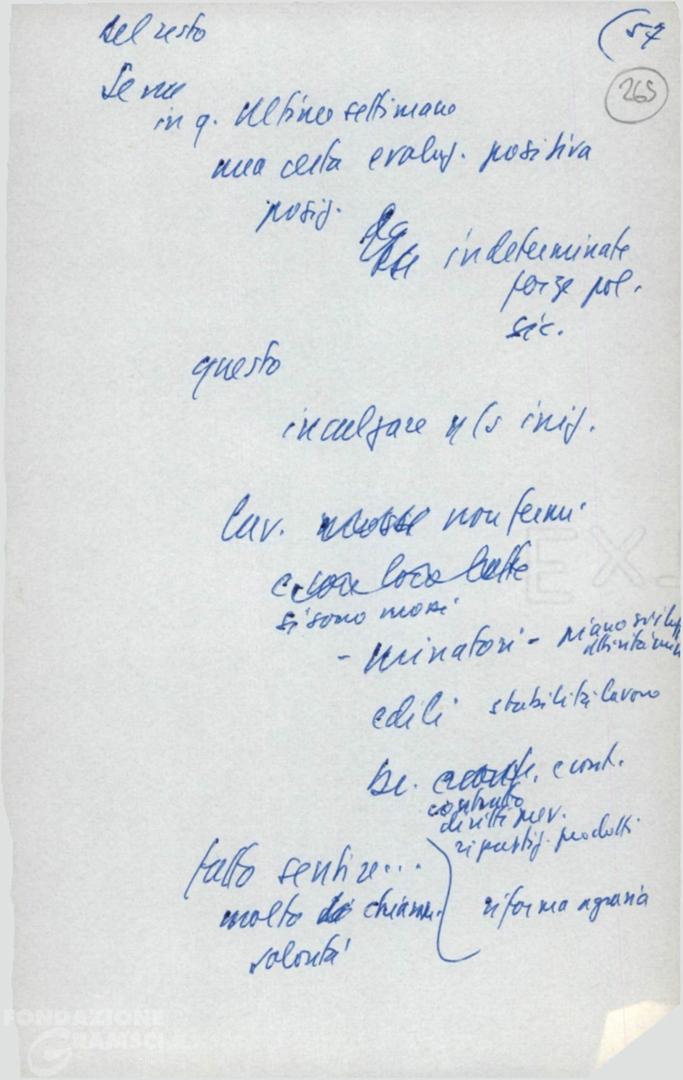 Del resto
(57
265
Se ne
in q. ultime settimane
una certa evoluz. positiva
posiz.
da indeterminate
forze pol.
sic.
questo
incalzare n/s iniz.
lav. non fermi
e lotte
si sono mossi
- minatori - piano svilupp
attività min
edili stabilità lavoro
br. e cont.
contratto
diritti prev.
ripartiz. prodotti
fatto sentire...
molto chiaram. riforma agraria
volontà
FONDAZIONE
GRAMSCI